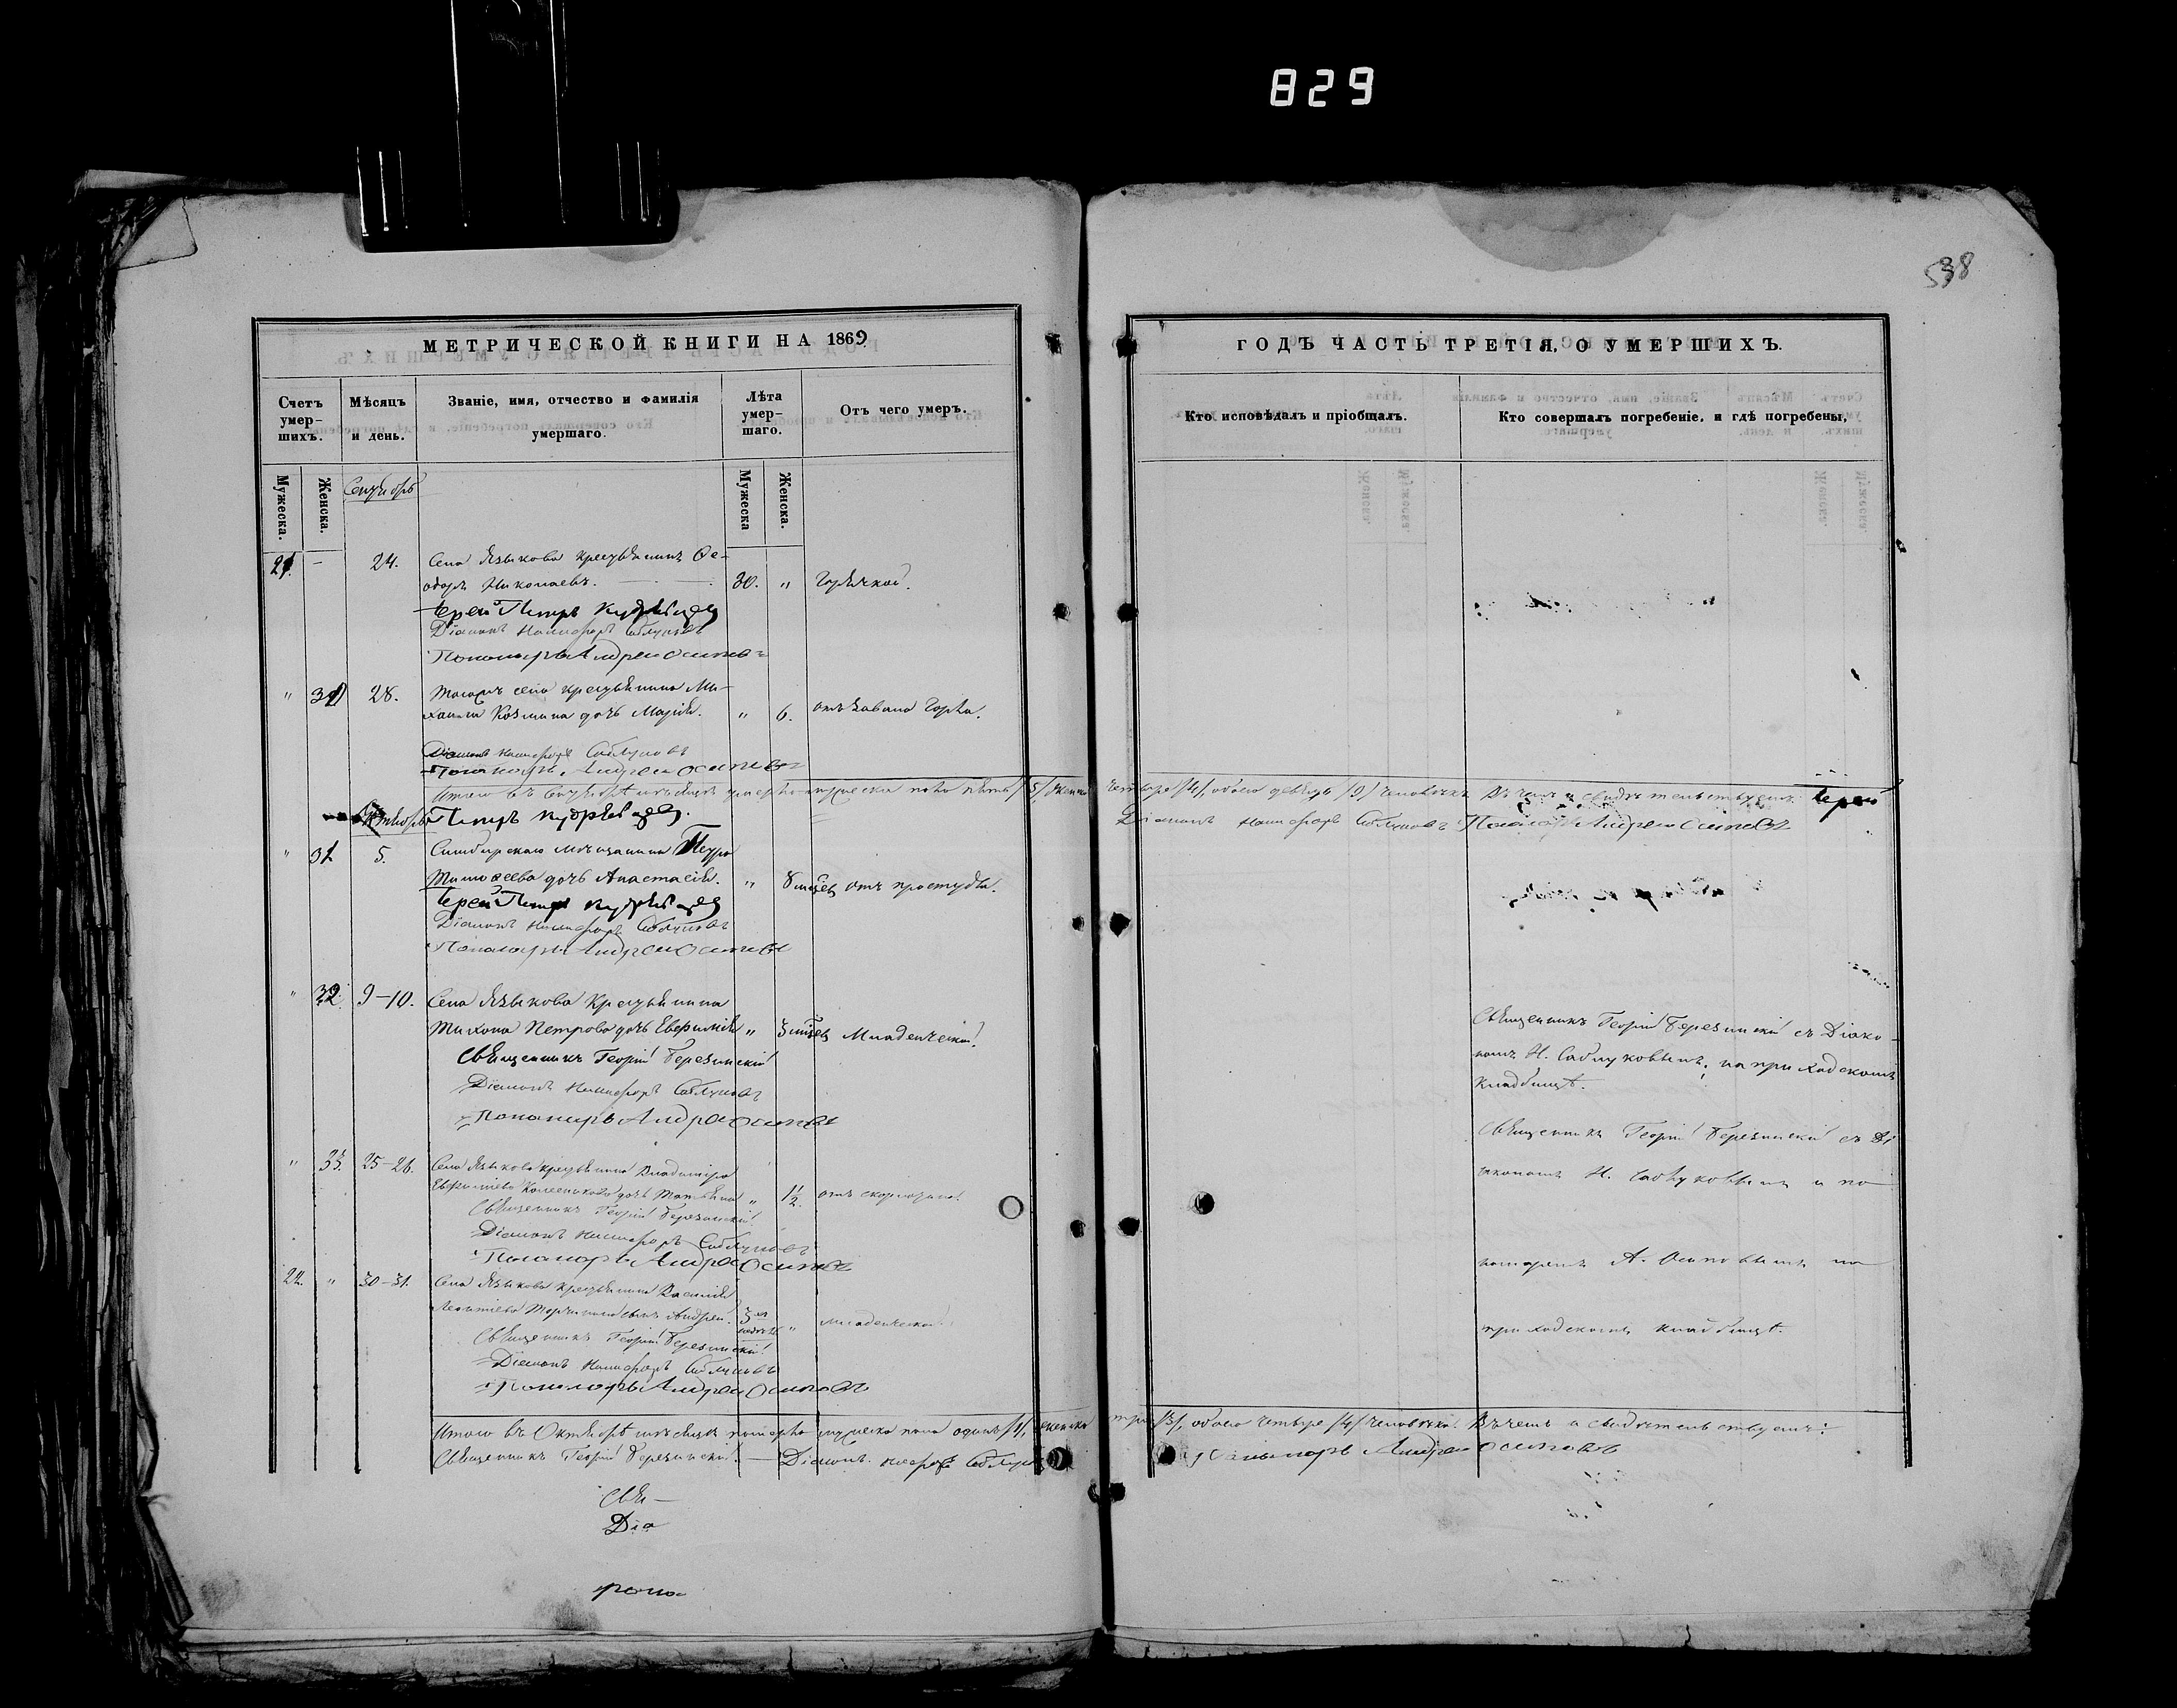 829
538
МЕТРИЧЕСКОЙ КНИГИ НА 1869
Счетъ умер-шихъ.
Мѣсяцъ и день.
Званіе, имя, отчество и фамилія умершаго.
Лѣта умер-шаго.
Отъ чего умеръ.
Мужеска. Женска.
Мужеска Женска.
Сентябрь
21. - 24. Села Языкова крестьянинъ Ѳе-
одоръ Николаевъ. 30. " Горячкой.
Іерей Петръ
Діаконъ Никифоръ Саблуковъ
Пономарь Андрей Осиповъ
" 28. Тогожъ села крестьянина Ми-
хаила Козмина дочь Марія. " 6. отъ завала горла.
Діаконъ Никифоръ Саблуковъ
Пономарь Андрей Осиповъ
Итого въ Сентябрѣ мѣсяцѣ умерло мужеска пола пять /5/, женска
Октябрь Петръ
" 31 5. Симбирскаго мѣщанина Петра
Тимоѳеева дочь Анастасія. " отъ простуды.
Іерей Петръ
Діаконъ Никифоръ Саблуковъ
Пономарь Андрей Осиповъ
" 32. 9-10. Села Языкова крестьянина
Тихона Петрова дочь Евфимія " Младенческой.
Священникъ Георгій Березинскій
Діаконъ Никифоръ Саблуковъ
Пономарь Андрей Осиповъ
" 33. 25-26. Села Языкова крестьянина Владиміра
дочь Татьяна " 1½.
Священникъ Георгій Березинскій.
Діаконъ Никифоръ Саблуковъ
Пономарь Андрей Осиповъ
22. " 30-31. Села Языкова крестьянина Василія
Леонтіева сынъ Андрей. " младенческой
Священникъ Георгій Березинскій.
Діаконъ Никифоръ Саблуковъ
Пономарь Андрей Осиповъ
Итого въ Октябрѣ мѣсяцѣ померло мужеска пола одинъ /1/, женска
Священникъ Георгій Березинскій. — Діаконъ
Свя-
Діа
ГОДЪ ЧАСТЬ ТРЕТІЯ, О УМЕРШИХЪ.
Кто исповѣдалъ и пріобщалъ.
Кто совершалъ погребеніе, и гдѣ погребены,
четыре /4/, обоего девять /9/ человѣкъ. Въ чемъ и свидѣтельствуемъ: Іерей
Діаконъ Никифоръ Саблуковъ Пономарь Андрей Осиповъ
Священникъ Георгій Березинскій съ Діако-
номъ Н. Саблуковымъ, на приходскомъ
кладбищѣ.
Священникъ Георгій Березинскій съ Ді
акономъ Н. Саблуковымъ и по
номаремъ А. Осиповымъ на
приходскомъ кладбищѣ.
три /3/, обоего четыре /4/ человѣка. Въ чемъ и свидѣтельствуемъ:
Пономарь Андрей Осиповъ